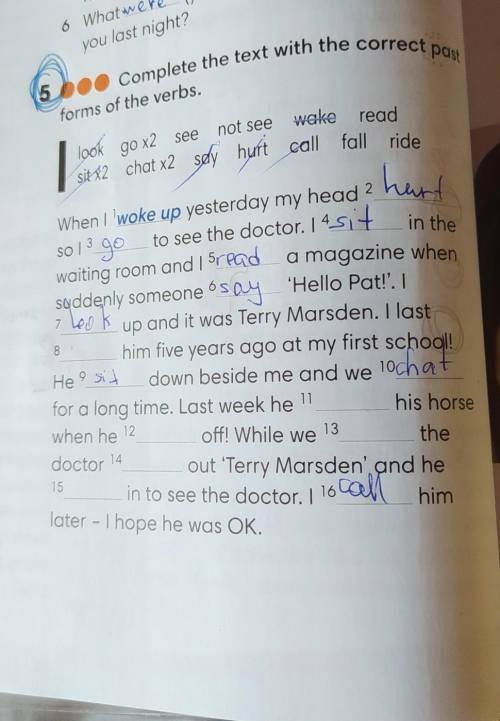 6 What were
you last night?
5 Complete the text with the correct past
forms of the verbs.
look go x2 see not see wake read
sit x2 chat x2 say hurt call fall ride
When I 1 woke up yesterday my head 2 hurt
so I 3 go to see the doctor. I 4 sit in the
waiting room and I 5 read a magazine when
suddenly someone 6 say 'Hello Pat!'. I
7 look up and it was Terry Marsden. I last
8 him five years ago at my first school!
He 9 sit down beside me and we 10 chat
for a long time. Last week he 11 his horse
when he 12 off! While we 13 the
doctor 14 out 'Terry Marsden' and he
15 in to see the doctor. I 16 call him
later – I hope he was OK.